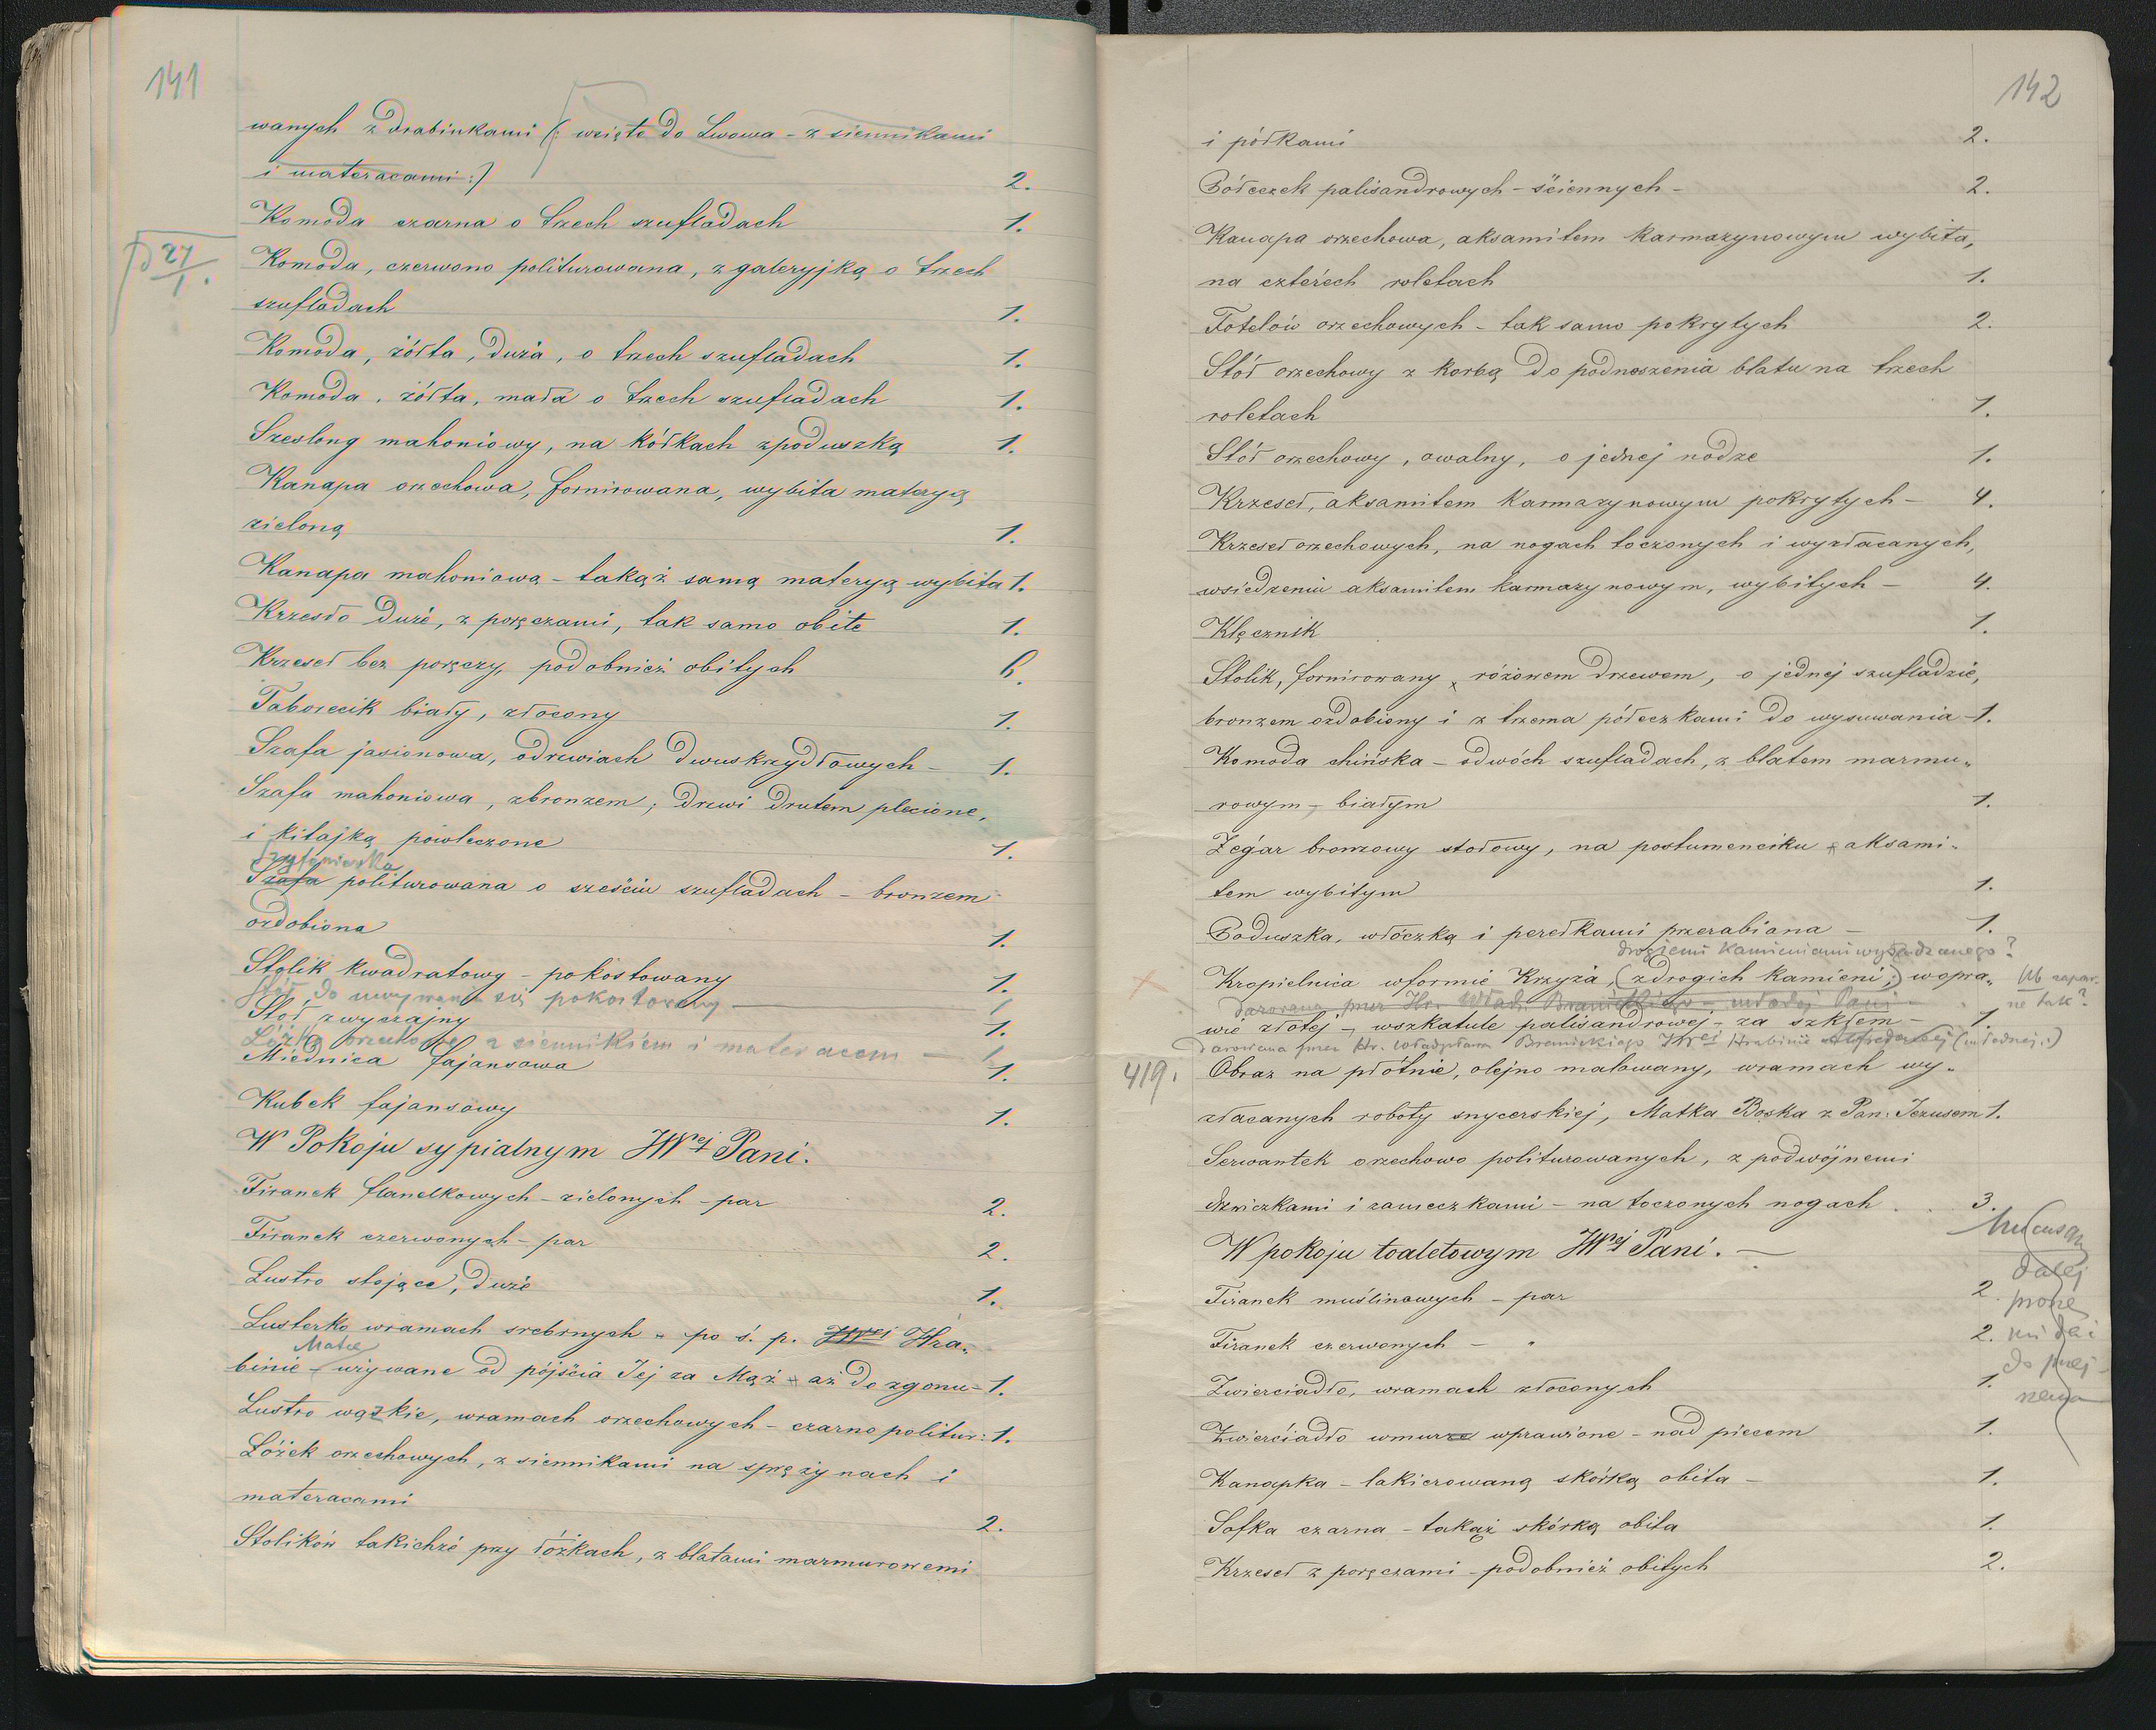 141
wanych z drabinkami (: wzięte do Lwowa - z siennikami
i materacami :)	2.
Komoda czarna o trzech szufladach	1.
27/1.
Komoda, czerwono politurowana, z galeryjką o trzech
szufladach	1.
Komoda, żółta, duża, o trzech szufladach	1.
Komoda, żółta, mała o trzech szufladach	1.
Szeslong mahoniowy, na kółkach z poduszką	1.
Kanapa orzechowa, fornirowana, wybita materyą
zieloną	1.
Kanapa mahoniowa - takąż samą materyą wybita	1.
Krzesło duże, z poręczami, tak samo obite	1.
Krzeseł bez poręczy, podobnież obitych	6.
Taborecik biały, złocony	1.
Szafa jasionowa, o drzwiach dwuskrzydłowych -	1.
Szafa mahoniowa, z bronzem; drzwi drutem plecione,
i kitajką powleczone	1.
Szyfonierka
Szafa politurowana o sześciu szufladach - bronzem
ozdobiona	1.
Stolik kwadratowy - pokostowany	1.
Stół do umywania się pokostowany	1
Stół zwyczajny	1.
Łóżko orzechowe z siennikiem i materacem -	1
Miednica fajansowa	1.
Kubek fajansowy	1.
W Pokoju sypialnym JWej Pani.
Firanek flanelkowych - zielonych - par	2.
Firanek czerwonych - par	2.
Lustro stojące, duże	1.
Lusterko w ramach srebrnych - po ś. p. JWej Hra„
Matce
binie - używane od pójścia Jej za Mąż - aż do zgonu -	1.
Lustro wązkie, w ramach orzechowych - czarno politur:	1.
Łóżek orzechowych, z siennikami na sprężynach i
materacami	2.
Stolików takichże przy łóżkach, z blatami marmurowemi
142
i półkami	2.
Półeczek palisandrowych - ściennych -	2.
Kanapa orzechowa, aksamitem karmazynowym wybita,
na czterech roletach	1.
Fotelów orzechowych - tak samo pokrytych	2.
Stół orzechowy z korbą do podnoszenia blatu na trzech
roletach	1.
Stół orzechowy, owalny, o jednej nodze	1.
Krzeseł, aksamitem karmazynowym pokrytych -	4.
Krzeseł orzechowych, na nogach toczonych i wyzłacanych,
w siedzeniu aksamitem karmazynowym, wybitych -	4.
Klęcznik	1.
Stolik, fornirowany różowem drzewem, o jednej szufladzie,
bronzem ozdobiony i z trzema półeczkami do wysuwania -	1.
Komoda chińska - o dwóch szufladach, z blatem marmu„
rowym - białym	1.
Zegar bronzowy stołowy, na postumenciku aksami„
tem wybitym	1.
Poduszka, włóczką i perełkami przerabiana -	1.
drogiemi kamieniami wysadzanego?
Kropielnica w formie Krzyża, (z drogich kamieni;) w opra„
ne tak?
darowana przez Hr. Wład. Branickiego - młodej Pani
wie złotej - w szkatule palisandrowej - za szkłem -	1.
darowana przez Hr. Władysława Branickiego JWej Hrabinie Alfredowej (młodej.)
419.
Obraz na płótnie, olejno malowany, w ramach wy„
złacanych roboty snycerskiej, Matka Boska z Pan: Jezusem	1.
Serwantek orzechowo politurowanych, z podwójnemi
drzwiczkami i zameczkami - na toczonych nogach	3.
W pokoju toaletowym JWej Pani. -
dalej
proszę
Firanek muślinowych - par	2.
Firanek czerwonych - „	2.
Zwierciadło, w ramach złoconych	1.
Zwierciadło w murze wprawione - nad piecem	1.
Kanapka - lakierowaną skórką obita -	1.
Sofka czarna - takąż skórką obita	1.
Krzeseł z poręczami - podobnież obitych	2.